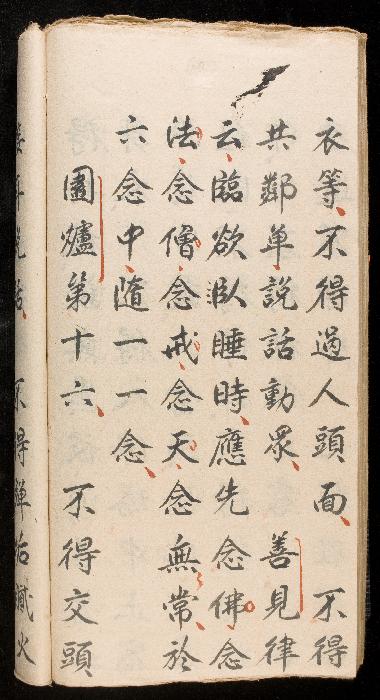 衣等不得過人頭面　不得
共鄰单說話動眾　善見律
云臨欲臥睡時應先念佛念
法念僧念戒念天念無常於
六念中隨一一念
圍爐第十六　不得交頭